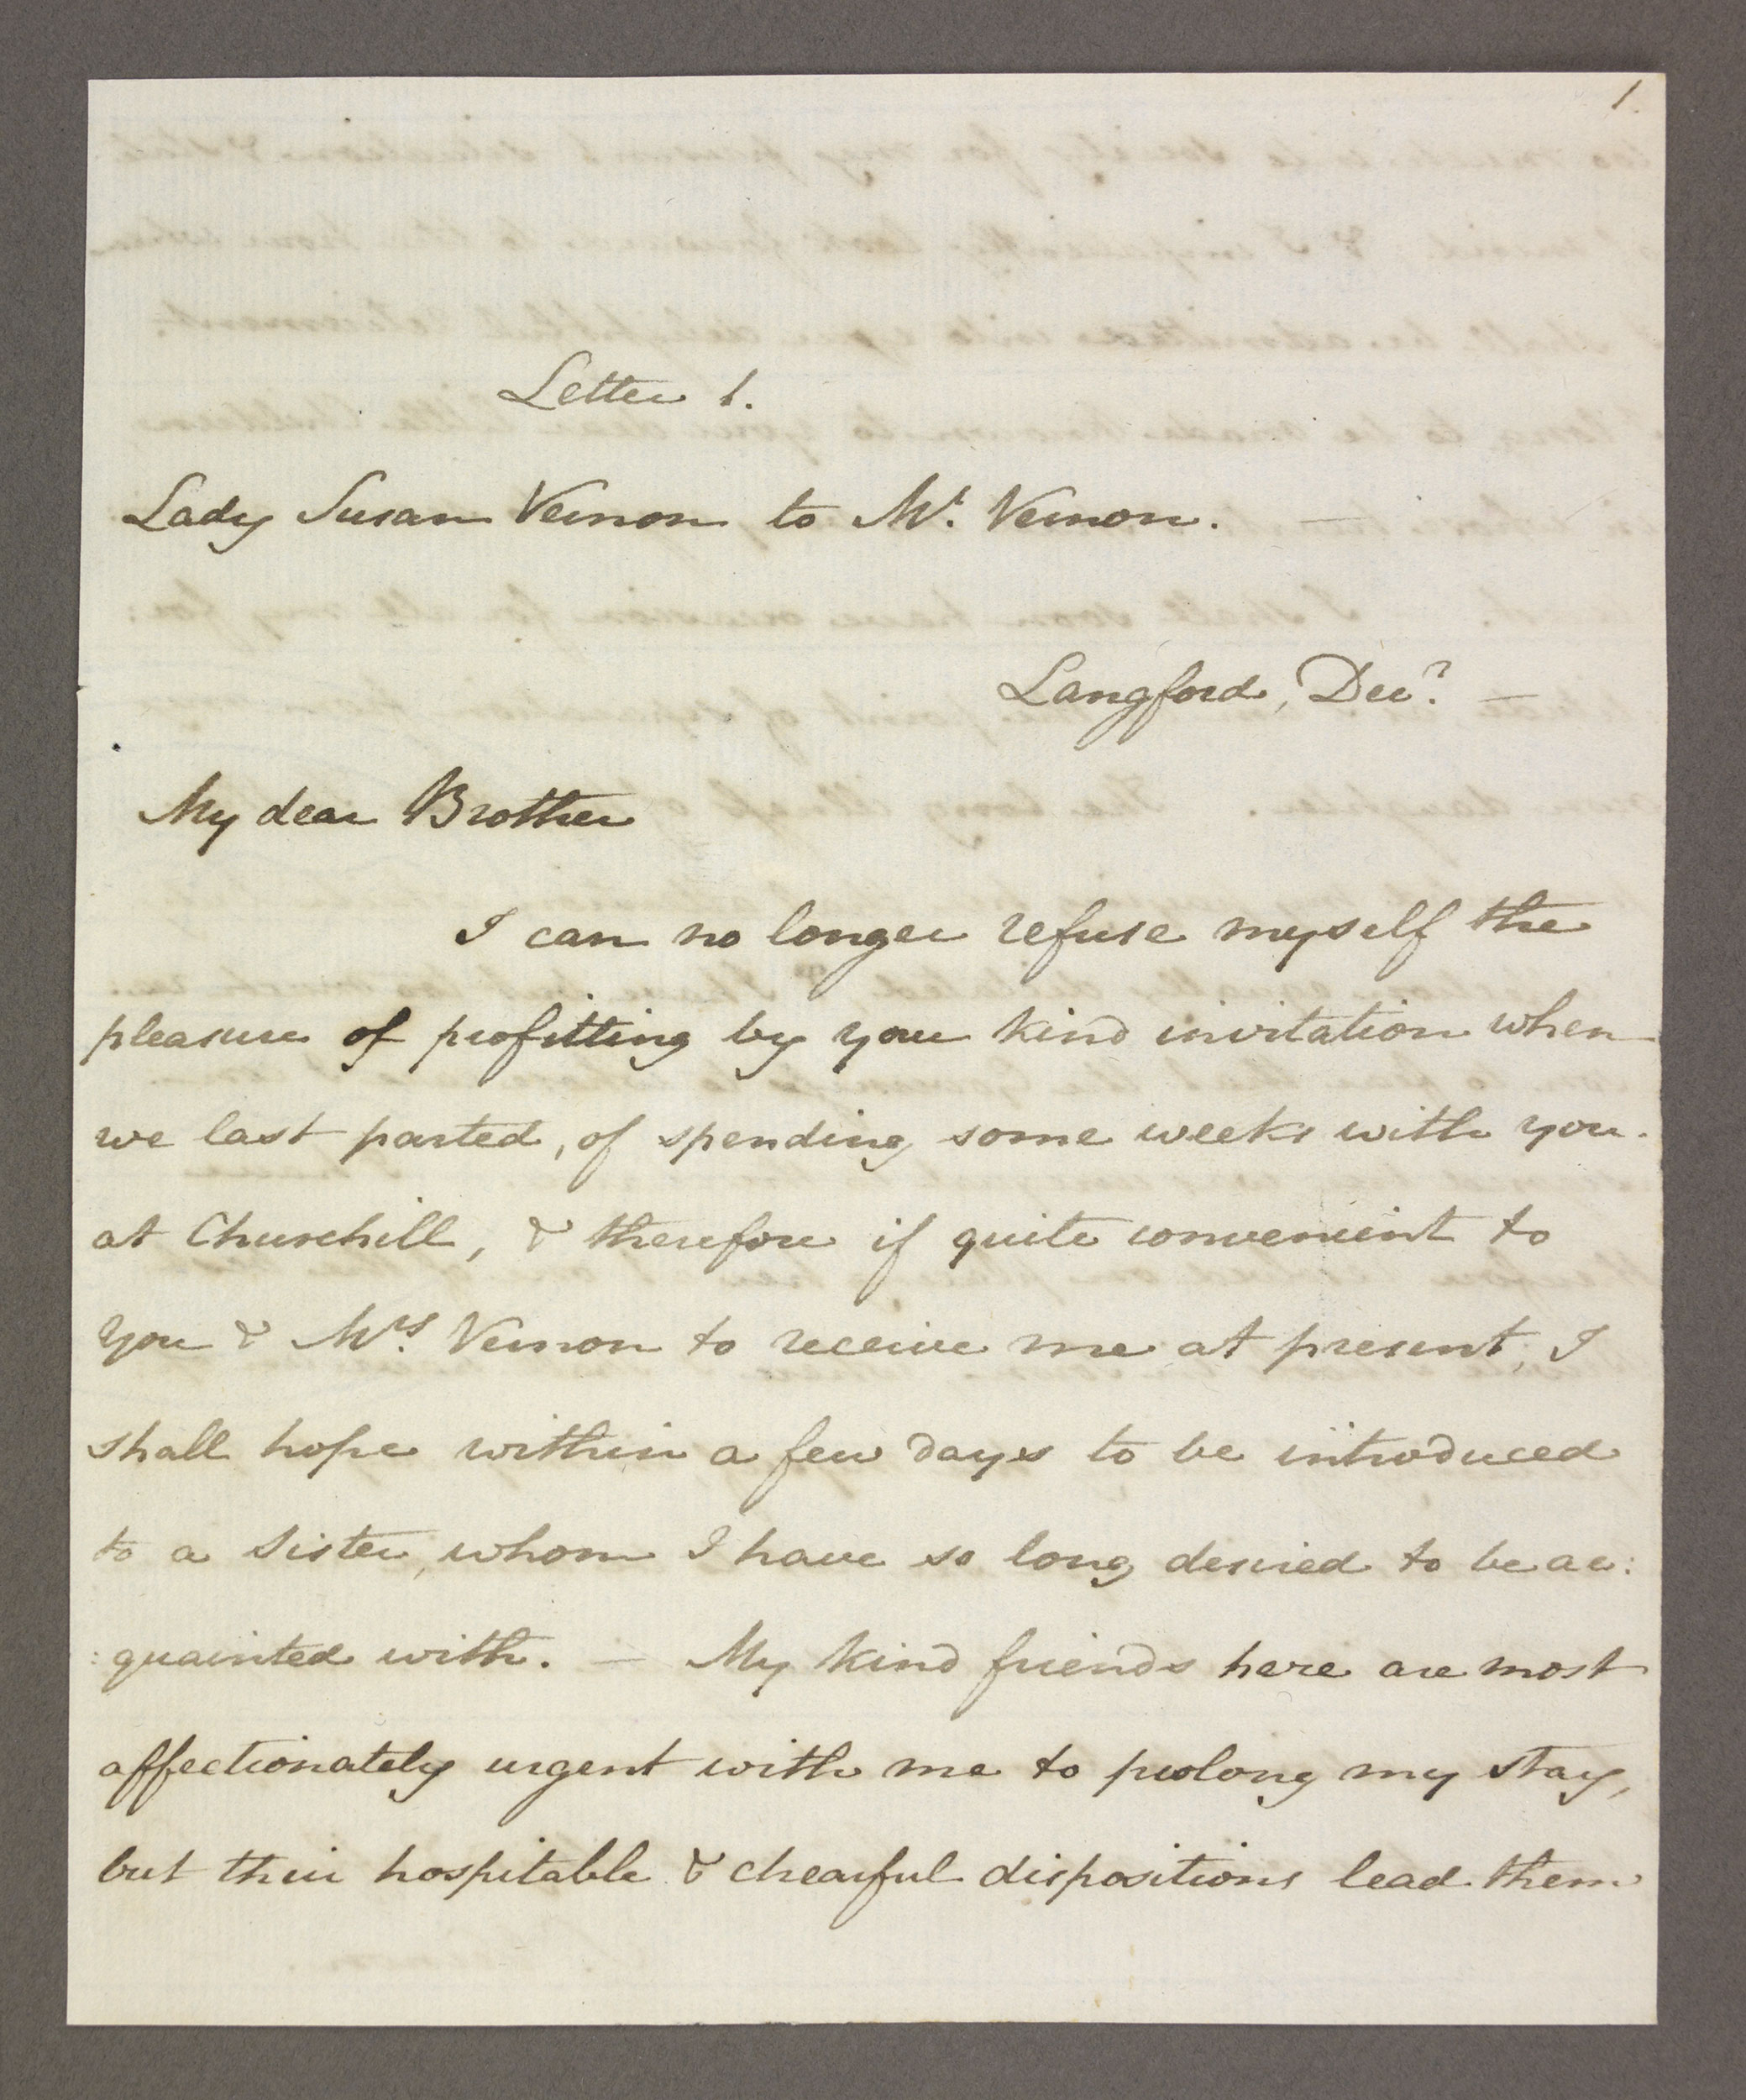 1.
Letter 1.
Lady Susan Vernon to Mr. Vernon. —
Langford, Decr. —
My dear Brother
I can no longer refuse myself the
pleasure of profitting by your kind invitation when
we last parted, of spending some weeks with you
at Churchill, & therefore if quite convenient to
you & Mrs. Vernon to receive me at present, I
shall hope within a few days to be introduced
to a Sister, whom I have so long desired to be ac:
:quainted with. — My kind friends here are most
affectionately urgent with me to prolong my stay,
but their hospitable & chearful dispositions lead them